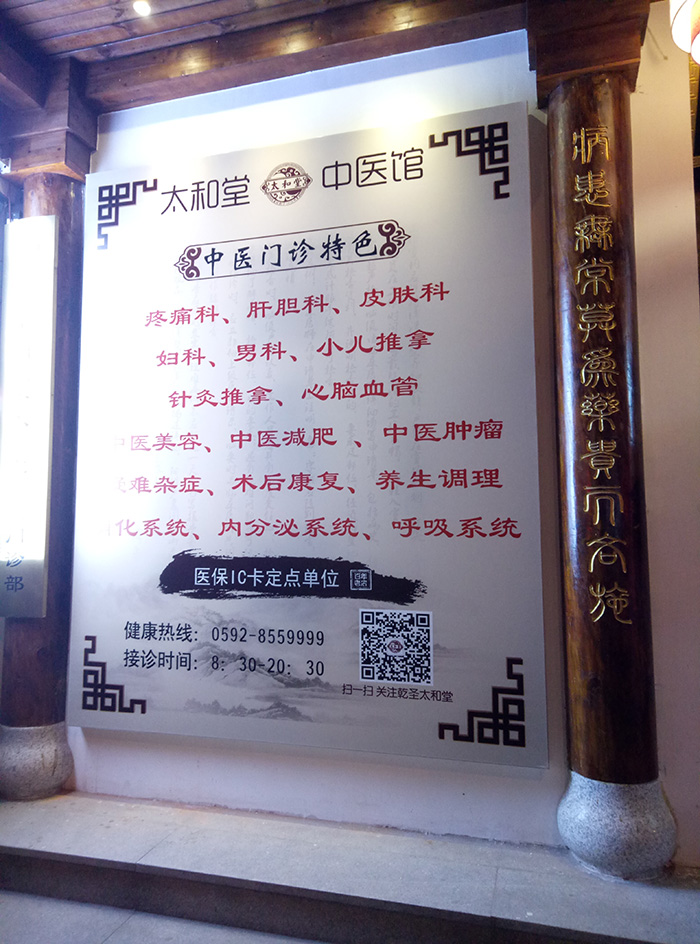 太和堂 太和堂 中医馆
中医门诊特色
疼痛科、肝胆科、皮肤科
妇科、男科、小儿推拿
针灸推拿、心脑血管
中医美容、中医减肥 、中医肿瘤
难杂症、术后康复、养生调理
化系统、内分泌系统、呼吸系统
医保IC卡定点单位
健康热线: 0592-8559999
接诊时间: 8: 30-20: 30
扫一扫 关注乾圣太和堂
病患無常莫為藥貴而吝施
诊部